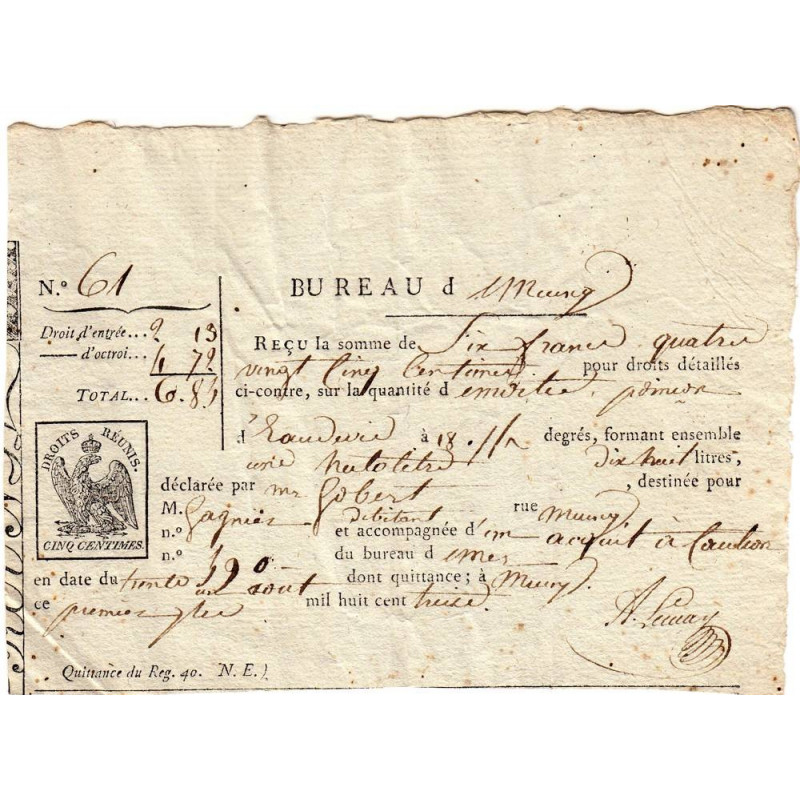 N.º 61
BUREAU d Meung
Droit d'entrée... 2 13
— d'octroi... 4 72
TOTAL... 6 85
REÇU la somme de Six francs quatre
vingt cinq Centimes pour droits détaillés
ci-contre, sur la quantité d poinçon
d' Eaudevie à 18 degrés, formant ensemble
une hectolitre dix huit litres,
déclarée par mr Gobert , destinée pour
M. Gagnier débitant rue Meung
n.º et accompagnée d'un acquit à Caution
n.º 190 du bureau d
en date du trente un août dont quittance ; à Meung
ce premier 7bre mil huit cent treize
DROITS RÉUNIS.
CINQ CENTIMES.
Quittance du Reg. 40. N. E.)